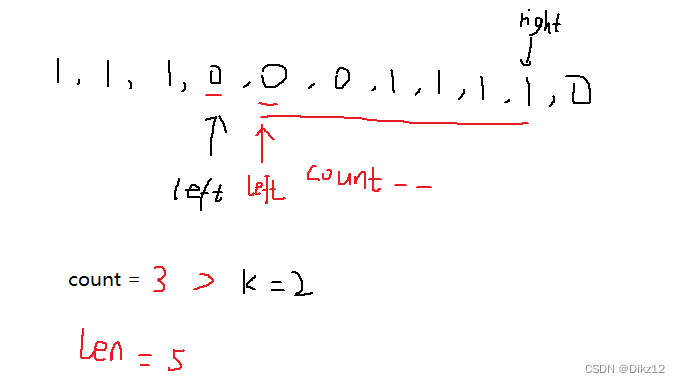 right
1, 1, 1, 0, 0, 0, 1, 1, 1, 1, 0
left left count--
count = 3 > k=2
len = 5
CSDN @Dikz12